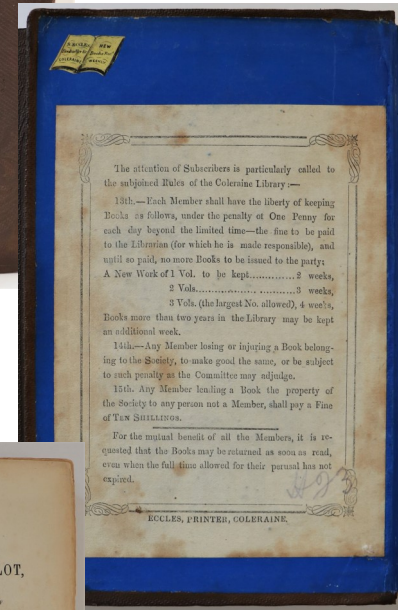 NEW
COLERAINE
The attention of Subscribers is particularly called to
the subjoined Rules of the Coleraine Library:—
13th.—Each Member shall have the liberty of keeping
Books as follows, under the penalty of One Penny for
each day beyond the limited time—the fine to be paid
to the Librarian (for which he is made responsible), and
until so paid, no more Books to be issued to the party;
A New Work of 1 Vol. to be kept..............2 weeks,
2 Vols..............................3 weeks,
3 Vols. (the largest No. allowed), 4 weeks,
Books more than two years in the Library may be kept
an additional week.
14th.—Any Member losing or injuring a Book belong-
ing to the Society, to make good the same, or be subject
to such penalty as the Committee may adjudge.
15th. Any Member lending a Book the property of
the Society to any person not a Member, shall pay a Fine
of TEN SHILLINGS.
For the mutual benefit of all the Members, it is re-
quested that the Books may be returned as soon as read,
even when the full time allowed for their perusal has not
expired.
ECCLES, PRINTER, COLERAINE.
LOT,